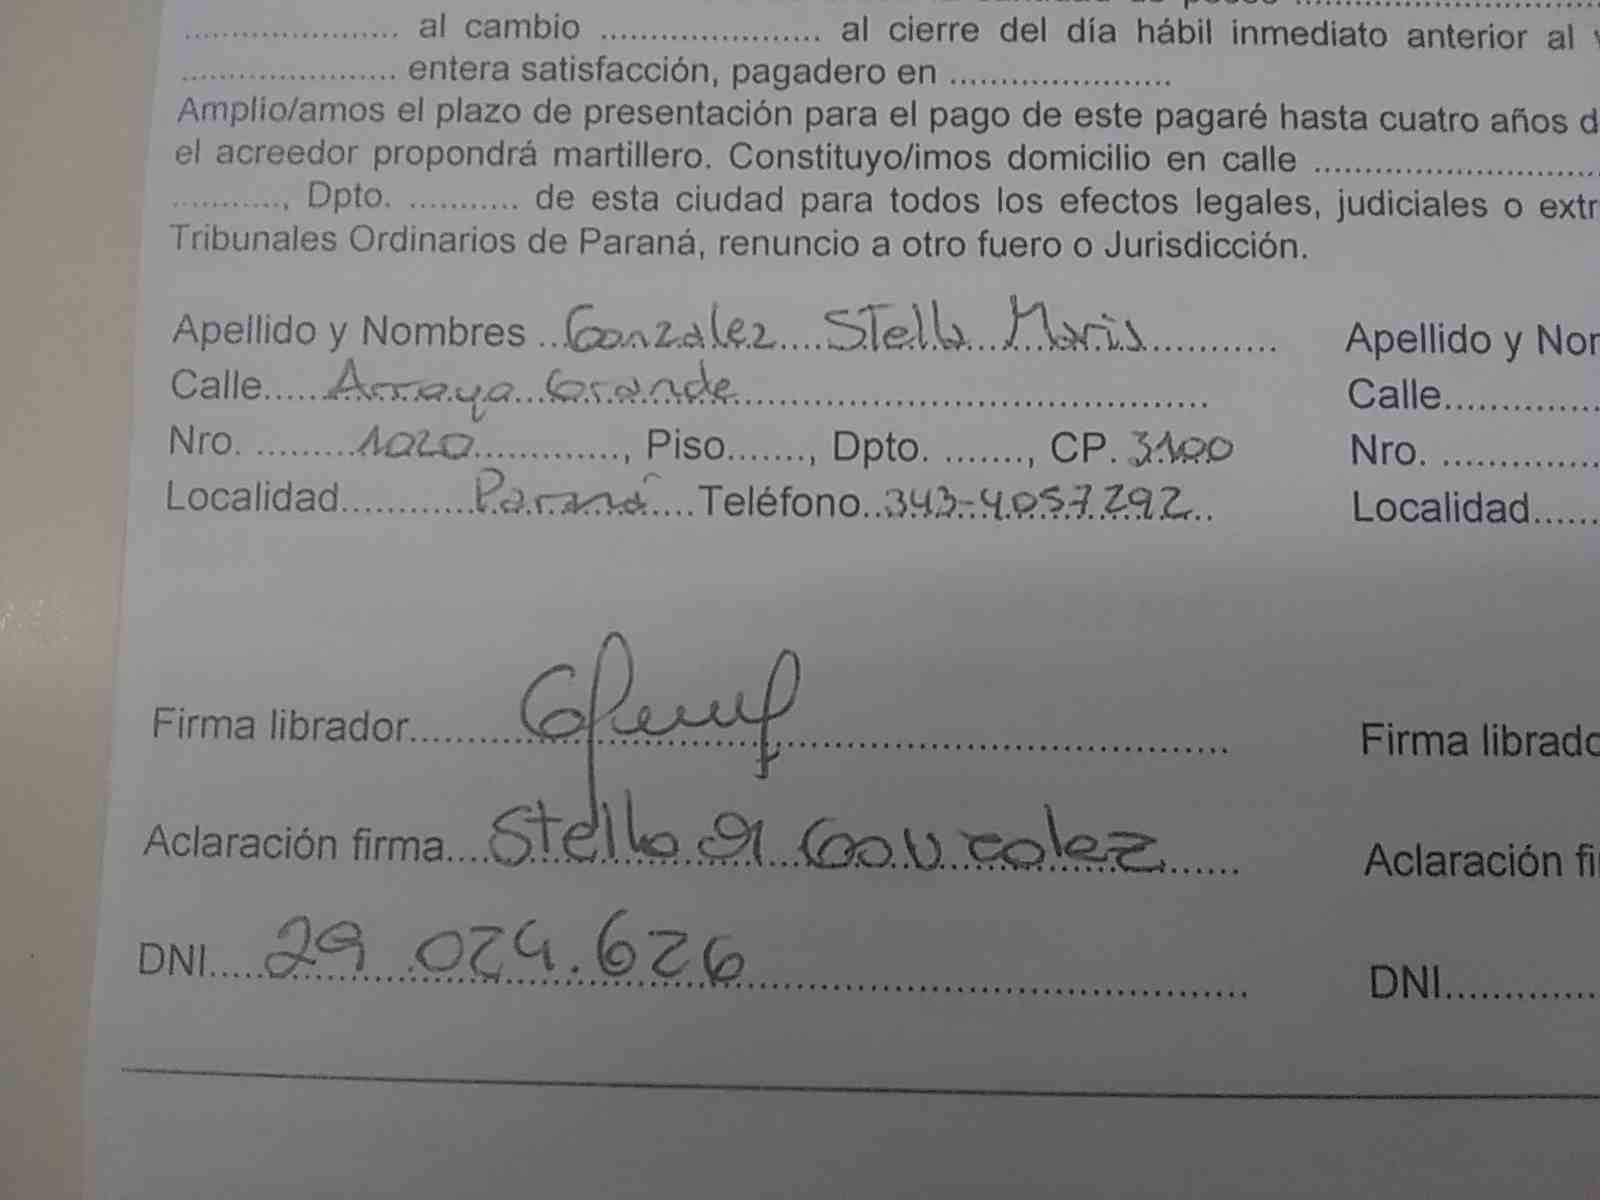 ..................... al cambio ...................... al cierre del día hábil inmediato anterior al
..................... entera satisfacción, pagadero en ......................
Amplio/amos el plazo de presentación para el pago de este pagaré hasta cuatro años d
el acreedor propondrá martillero. Constituyo/imos domicilio en calle ............................
..........., Dpto. ........... de esta ciudad para todos los efectos legales, judiciales o extr
Tribunales Ordinarios de Paraná, renuncio a otro fuero o Jurisdicción.
Apellido y Nombres Gonzalez Stella Maris Apellido y Nor
Calle Arroyo Grande Calle
Nro. 1020, Piso......., Dpto. ......., CP. 3100 Nro.
Localidad Paraná Teléfono 343-4057292 Localidad
Firma librador Firma librado
Aclaración firma Stella M Gonzalez Aclaración fi
DNI 29.024.626 DNI